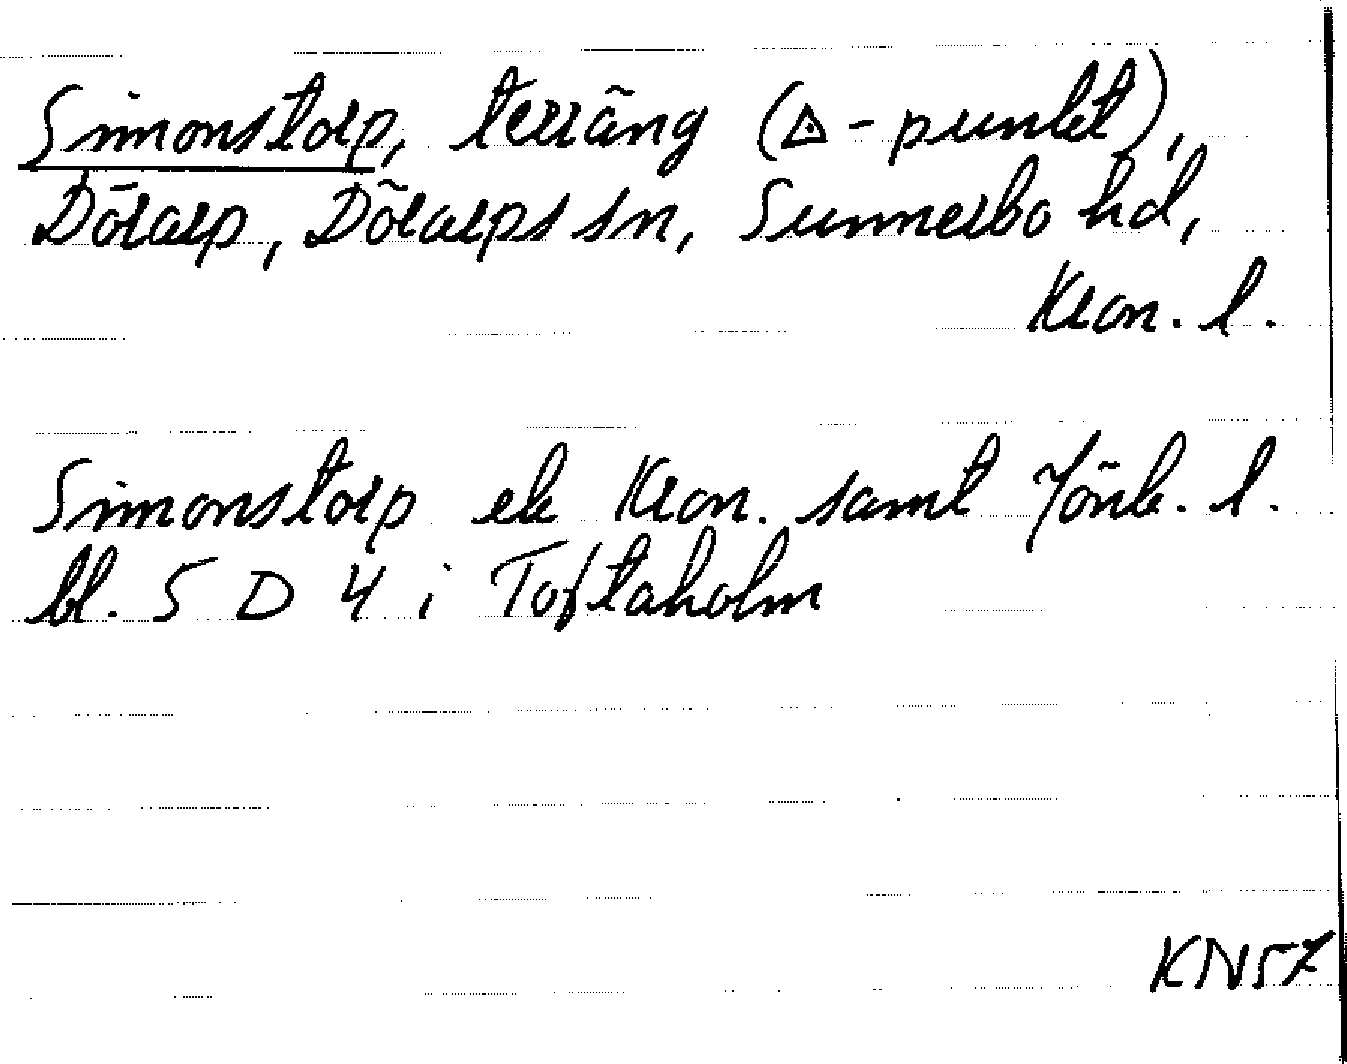 Simonstorp, terräng (△-punkt),
Dörarp, Dörarps sn, Sunnerbo hd,
Kron. l.
Simonstorp ek Kron. samt Jönk. l.
bl. 5 D 4 i Toftaholm
KN57